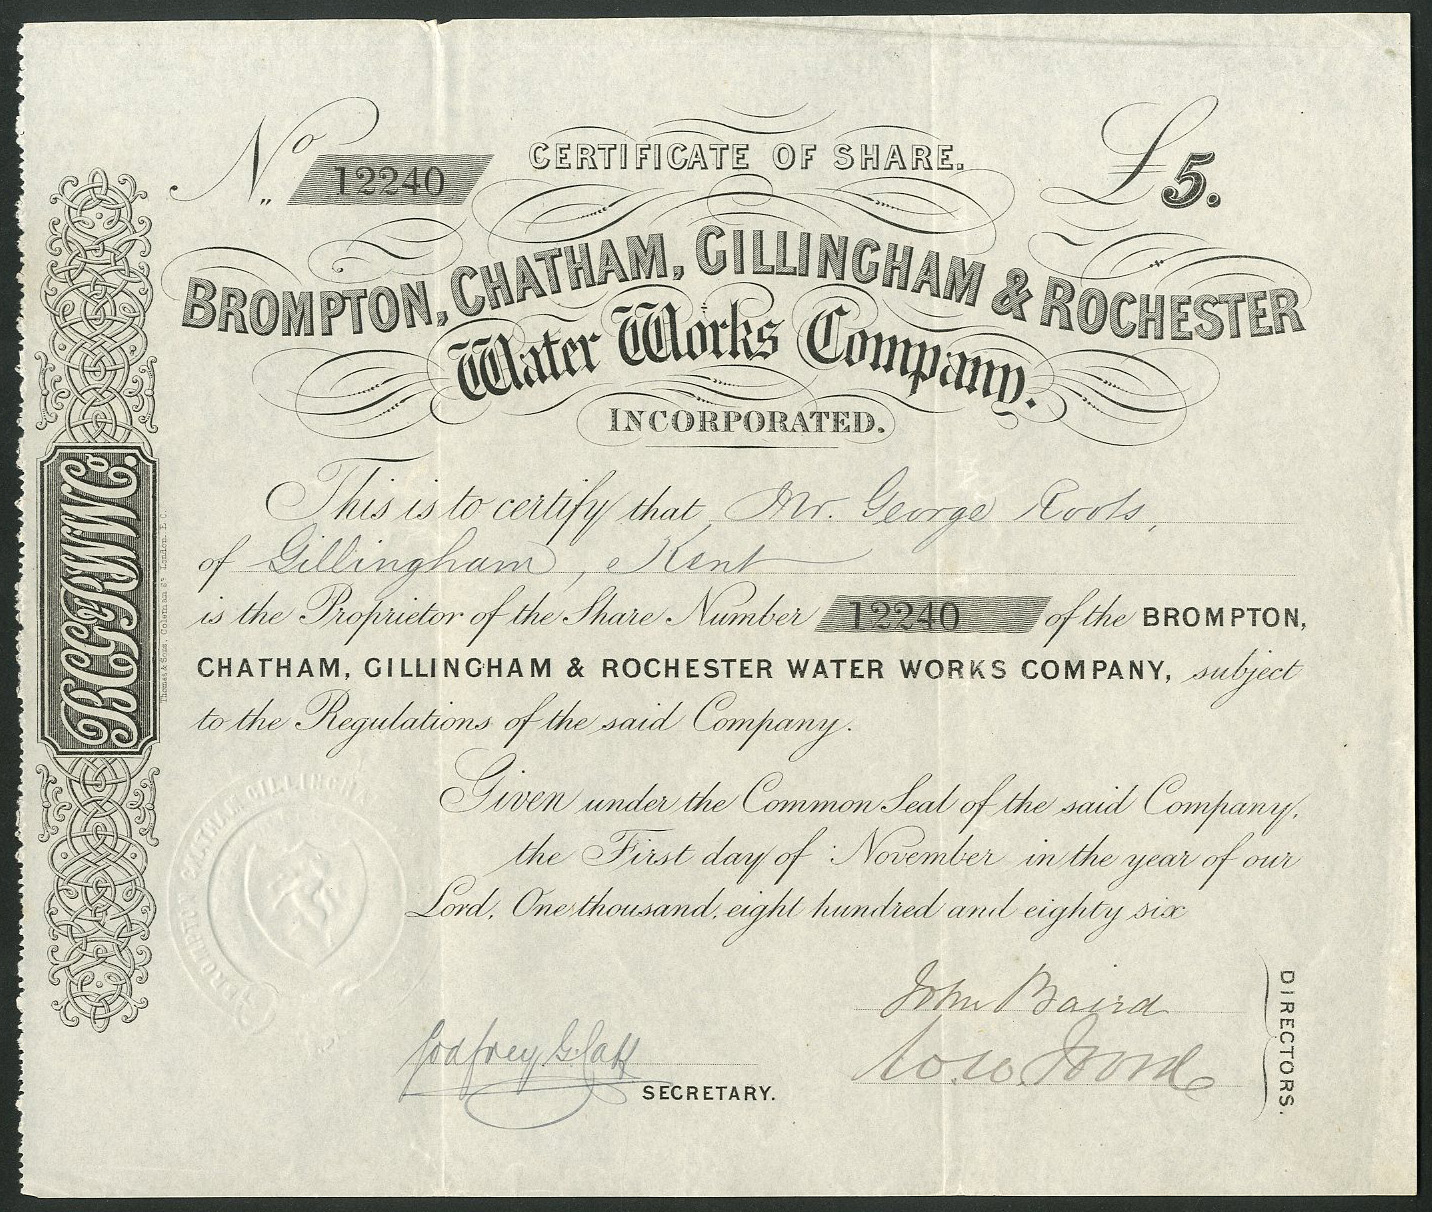 No 12240
CERTIFICATE OF SHARE.
£5.
BROMPTON, CHATHAM, GILLINGHAM & ROCHESTER
Water Works Company.
INCORPORATED.
This is to certify that Mr. George Roots,
of Gillingham, Kent
is the Proprietor of the Share Number 12240 of the BROMPTON,
CHATHAM, GILLINGHAM & ROCHESTER WATER WORKS COMPANY, subject
to the Regulations of the said Company.
Given under the Common Seal of the said Company,
the First day of November in the year of our
Lord, One thousand, eight hundred and eighty six
John Baird
W. W.
DIRECTORS.
Godfrey G.
SECRETARY.
BCG&RWWCo.
Thomas & Sons, Coleman St London. E.C.
BROMPTON CHATHAM GILLINGHA